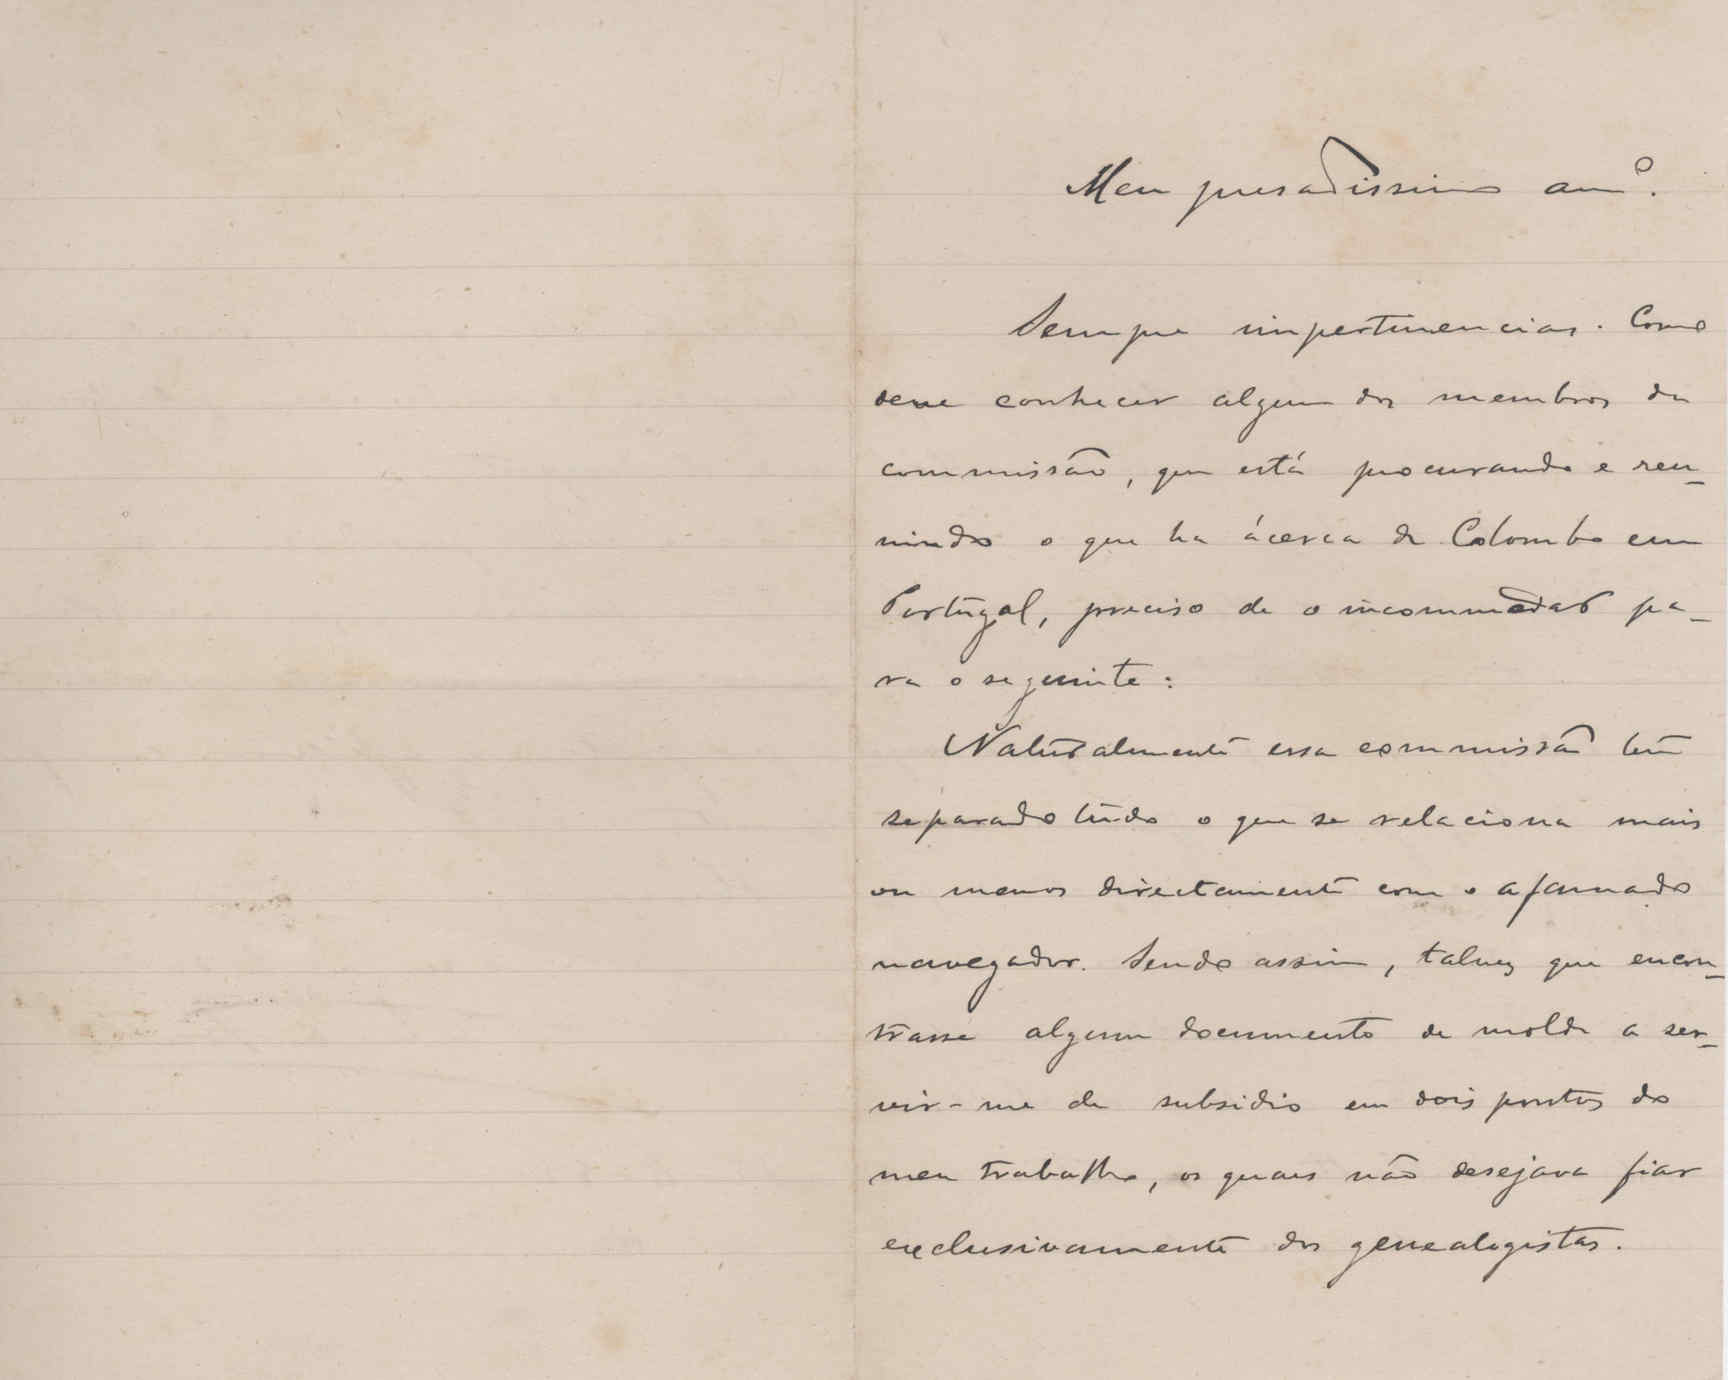 Meu presadissimo amº.
Sempre impertinencias. Como
deve conhecer algum dos membros da
commissão, que está procurando e reu-
nindo o que ha ácerca de Colombo em
Portugal, preciso de o incommodar pa-
ra o seguinte:
Naturalmente essa commissão tem
separado tudo o que se relaciona mais
ou menos directamente com o afamado
navegador. Sendo assim, talvez que encon-
trasse algum documento de molde a ser-
vir-me de subsidio em dois pontos do
meu trabalho, os quaes não desejava fiar
exclusivamente dos genealogistas.